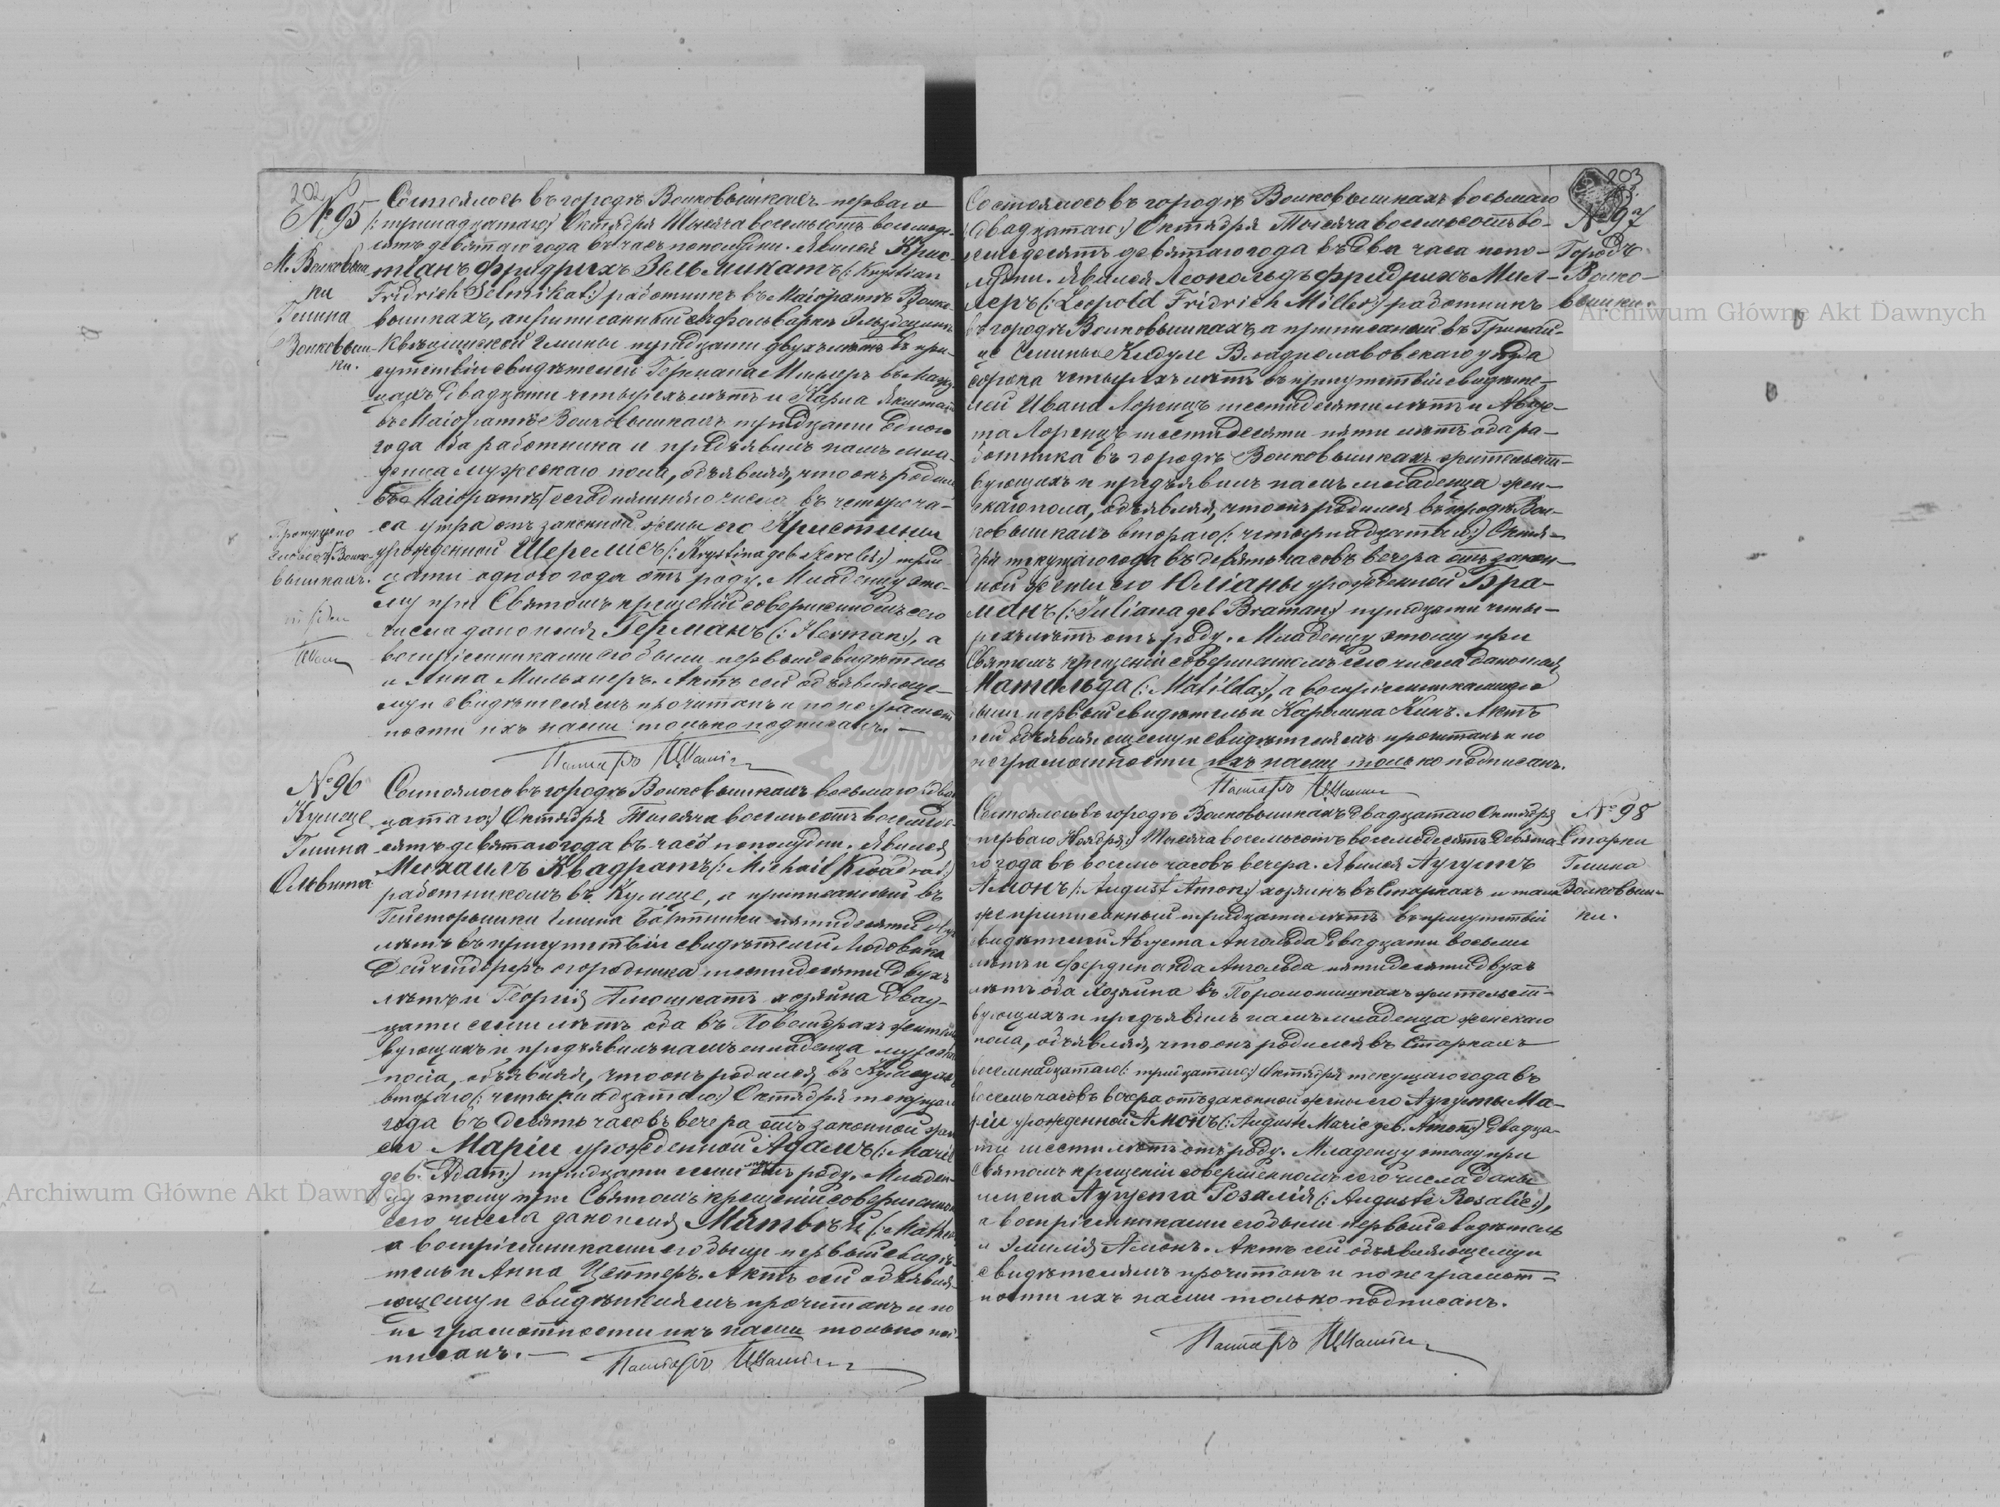 202
№ 95
М. Волковыш
ки
Гмина
Волковыш-
ки.
Состоялось въ городѣ Волковышкахъ перваго
(:тринадцатаго:) Октября Тысяча восемьсотъ восемьде-
сятъ девятаго года въ часъ пополудни. Явился Крис-
тіанъ Фридрихъ Зельмикатъ (: Krystian
Fridrich Selmikat:) работникъ въ Маіоратѣ Волко-
вышкахъ, а приписанный въ фольваркѣ
гмины тридцати двухъ лѣтъ въ при-
сутствіи свидѣтелей Германа Мильнеръ въ
двадцати четырехъ лѣтъ и Карла
въ Маіоратѣ Волковышкахъ тридцати одного
года оба работника и предъявилъ намъ мла-
денца мужескаго пола, объявляя, что онъ родился
въ Маіоратѣ сегодняшняго числа въ четыре ча-
са утра отъ законной жены его Кристины
урожденной Шерелисъ (: Krystina дев. Szereles:) трид
цати одного года отъ роду. Младенцу это-
му при Святомъ крещеніи совершенномъ сего
числа дано имя Германъ (: Herman:), а
воспріемниками его были первый свидѣтель
и Анна Мильхнеръ. Актъ сей объявляюще-
му и свидѣтелямъ прочитанъ и по неграмот
ности ихъ нами только подписанъ. —
Пропущено
слово Волко-
вышкахъ.
Пасторъ
№ 96
Кумеце
Гмина
Ольвита
Состоялось въ городѣ Волковышкахъ восьмаго (:двад
цатаго:) Октября Тысяча восемьсотъ восемьде-
сятъ девятаго года въ часъ пополудни. Явился
Михаилъ Квадратъ (: Michail Kwadrad:)
работникомъ въ Кумеце, а приписанный въ
гмина Бартники пятидесяти двухъ
лѣтъ въ присутствіи свидѣтелей Людовика
огородника шестидесяти двухъ
лѣтъ и Георгія Плюшкатъ хозяина двад-
цати семи лѣтъ оба въ житель
вующихъ и предъявилъ намъ младенца мужеска
пола, объявляя, что онъ родился въ
втораго (: четырнадцатаго:) Октября текущаго
года въ десять часовъ вечера отъ законной жены
его Маріи урожденной Адамъ (: Marie
дев. Adam:) тридцати семи лѣтъ роду. Младен
цу этому при Святомъ крещеніи совершенномъ
сего числа дано имя Матвѣй (: Mathe
а воспріемниками его были первый свидѣ-
тель и Анна Цеттеръ. Актъ сей объявля-
ющему и свидѣтелямъ прочитанъ и по
не грамотности ихъ нами только под-
писанъ. —
Пасторъ
203
№ 97
Городъ
Волко-
вышки.
Состоялось въ городѣ Волковышкахъ восьмаго
(:двадцатаго:) Октября Тысяча восемьсотъ во-
семьдесятъ девятаго года въ два часа попо-
лудни. Явился Леопольдъ Фридрихъ Мил-
леръ (: Leopold Fridrich Miller:) работникъ
въ городѣ Волковышкахъ а приписаный въ
Гмины Кидуле Владиславовскаго уѣзда
сорока четырехъ лѣтъ въ присутствіи свидѣте-
лей Ивана Лоренцъ шестидесяти лѣтъ и Авгу-
ста Лоренцъ шестидесяти пяти лѣтъ оба ра-
ботника въ городѣ Волковышкахъ жительст-
вующихъ и предъявилъ намъ младенца жен-
скаго пола, объявляя, что онъ родился въ городѣ Вол-
ковышкахъ втораго (: четырнадцатаго:) Октя-
бря текущаго года въ девять часовъ вечера отъ закон-
ной жены его Юліаны урожденной Бра-
манъ (: Juliana дев Braman:) тридцати четы-
рехъ лѣтъ отъ роду. Младенцу этому при
Святомъ крещеніи совершенномъ сего числа дано имя
Матильда (: Matilda:), а воспріемниками его
были первый свидѣтель и Каролина Кинъ. Актъ
сей объявляющему и свидѣтелямъ прочитанъ и по
неграмотности ихъ нами только подписанъ.
Пасторъ
№ 98
Старки
Гмина
Волковыш-
ки.
Состоялось въ городѣ Волковышкахъ двадцатаго Октября
перваго Ноября:) Тысяча восемьсотъ восемьдесятъ девята-
го года въ восемь часовъ вечера. Явился Аугустъ
Амонъ (: August Amon:) хозяинъ въ Старкахъ и тамъ
же приписанный тридцати лѣтъ въ присутствіи
свидѣтелей Августа Ангольда двадцати восьми
лѣтъ и Фердинанда Ангольда пятидесяти двухъ
лѣтъ оба хозяина въ жительст-
вующихъ и предъявилъ намъ младенца женскаго
пола, объявляя, что онъ родился въ Старкахъ
восемнадцатаго (: тридцатаго:) Октября текущаго года въ
восемь часовъ вечера отъ законной жены его Аугусты Ма-
ріи урожденной Амонъ (: Auguste Marie дев. Amon:) двадца-
ти шести лѣтъ отъ роду. Младенцу этому при
Святомъ крещеніи совершенномъ сего числа даны
имена Аугуста Розалія (: Auguste Rosalie:),
а воспріемниками его были первый свидѣтель
и Эмилія Амонъ. Актъ сей объявляющему и
свидѣтелямъ прочитанъ и по не грамот-
ности ихъ нами только подписанъ.
Пасторъ
Archiwum Główne Akt Dawnych
Archiwum Główne Akt Dawnych